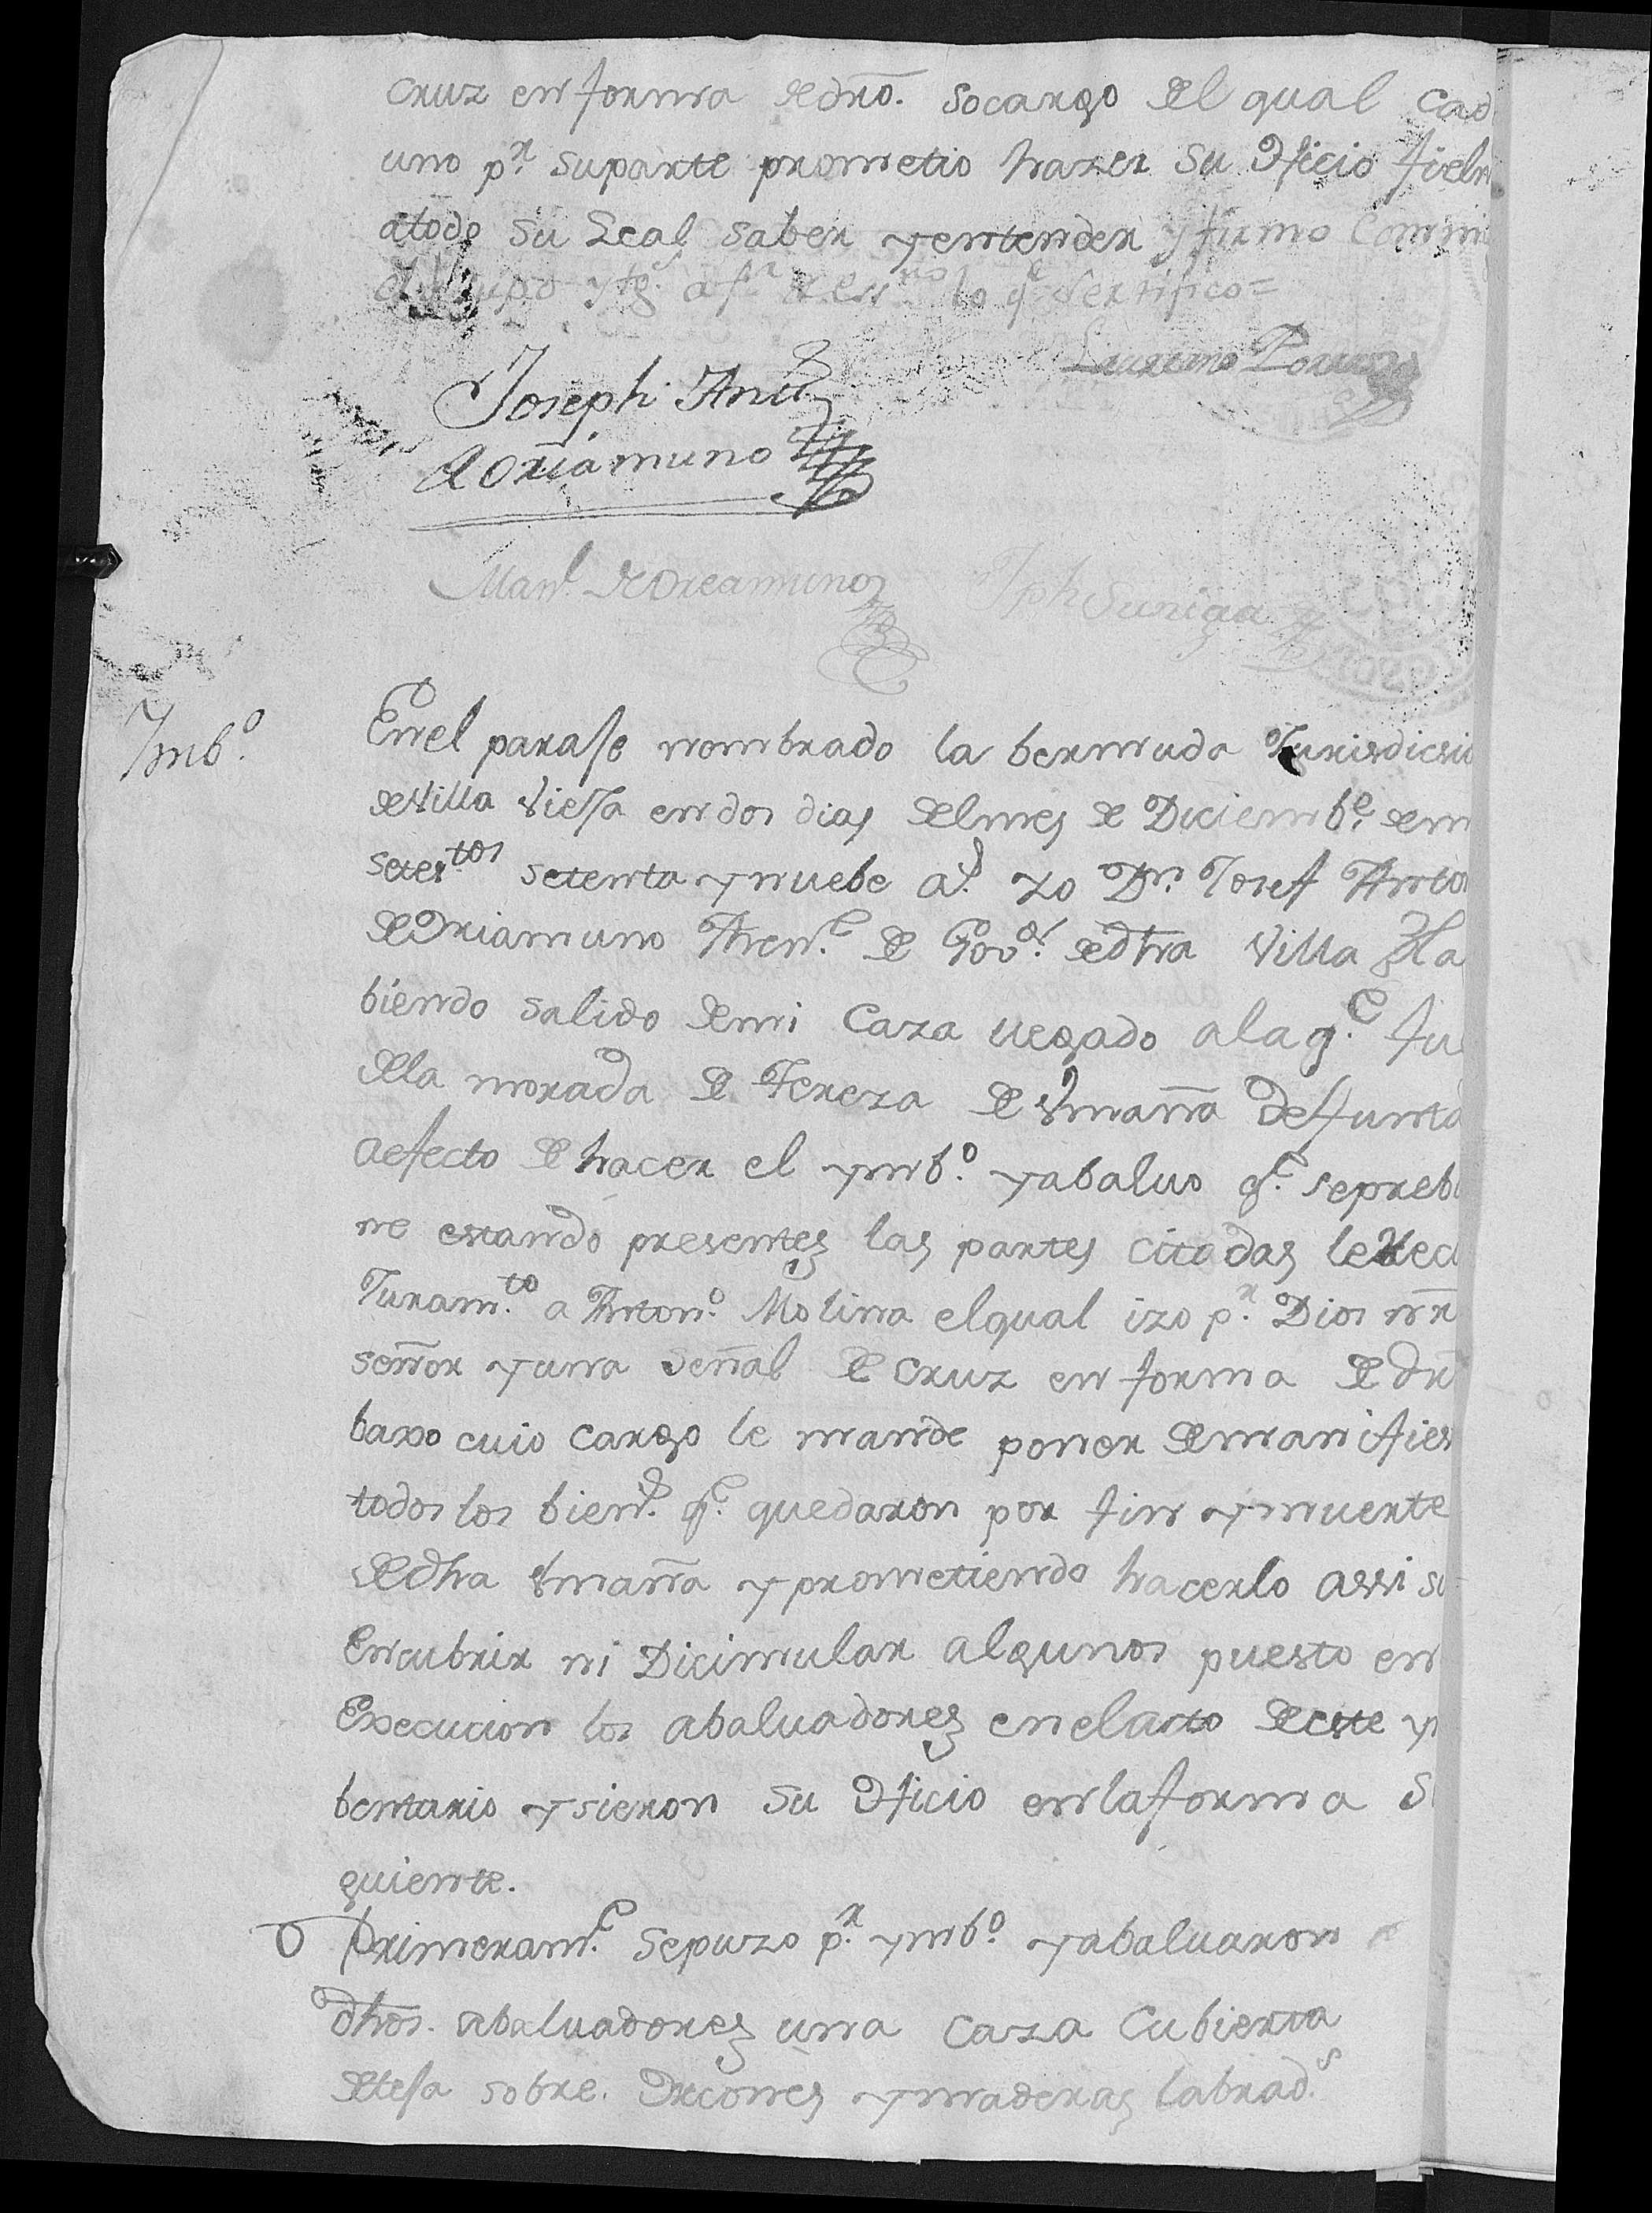 cruz en forma de dro. socargo del qual cad
uno pr. suparte prometio hazer su oficio fielm
atodo su Leal saber yentender y firmo Conmi
el supo y tgs. afa. de essno lo qe. Sertifico=
Laureano
Joseph Anto
de Oriamuno
Manl. de Oreamuno
Jph Suniga
Imbo.
Enel paraje nombrado la bermuda Jurisdicsio
de Villa Vieja en dos dias del mes de Diciembe. de m
seteitos setenta y nuebe as. Yo Dn. Josef Anto
de Oriamuno Thene. de Govor. de dha Villa Ha
biendo salido de mi Caza llegado a la qe. fu
de la morada de Tereza de Umaña Defunta
aefecto de hacer el ymbo. yabaluo qe. sepreb
ne estando presentes las partes citadas le Reci
Juramto. a Antono. Molina elqual izo pr. Dios nr
señor y una señal de cruz en forma de dr
baxo cuio cargo le mande poner de manifies
todos los biens. qe. quedaron por fin y muerte
de dha Umaña y prometiendo hacerlo assi si
Encubrir ni Dicimular algunos puesto en
Execucion los abaluadores en elacto de este yn
bentario ysieron su oficio en la forma Si
guiente.
Primerame. sepuzo pr. ymbo. yabaluaron
dhos. abaluadores una caza cubierta
de teja sobre. Orcones y maderas labrads.